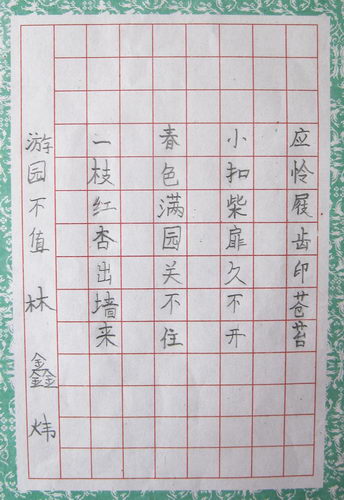 应怜屐齿印苍苔
小扣柴扉久不开
春色满园关不住
一枝红杏出墙来
游园不值 林鑫炜